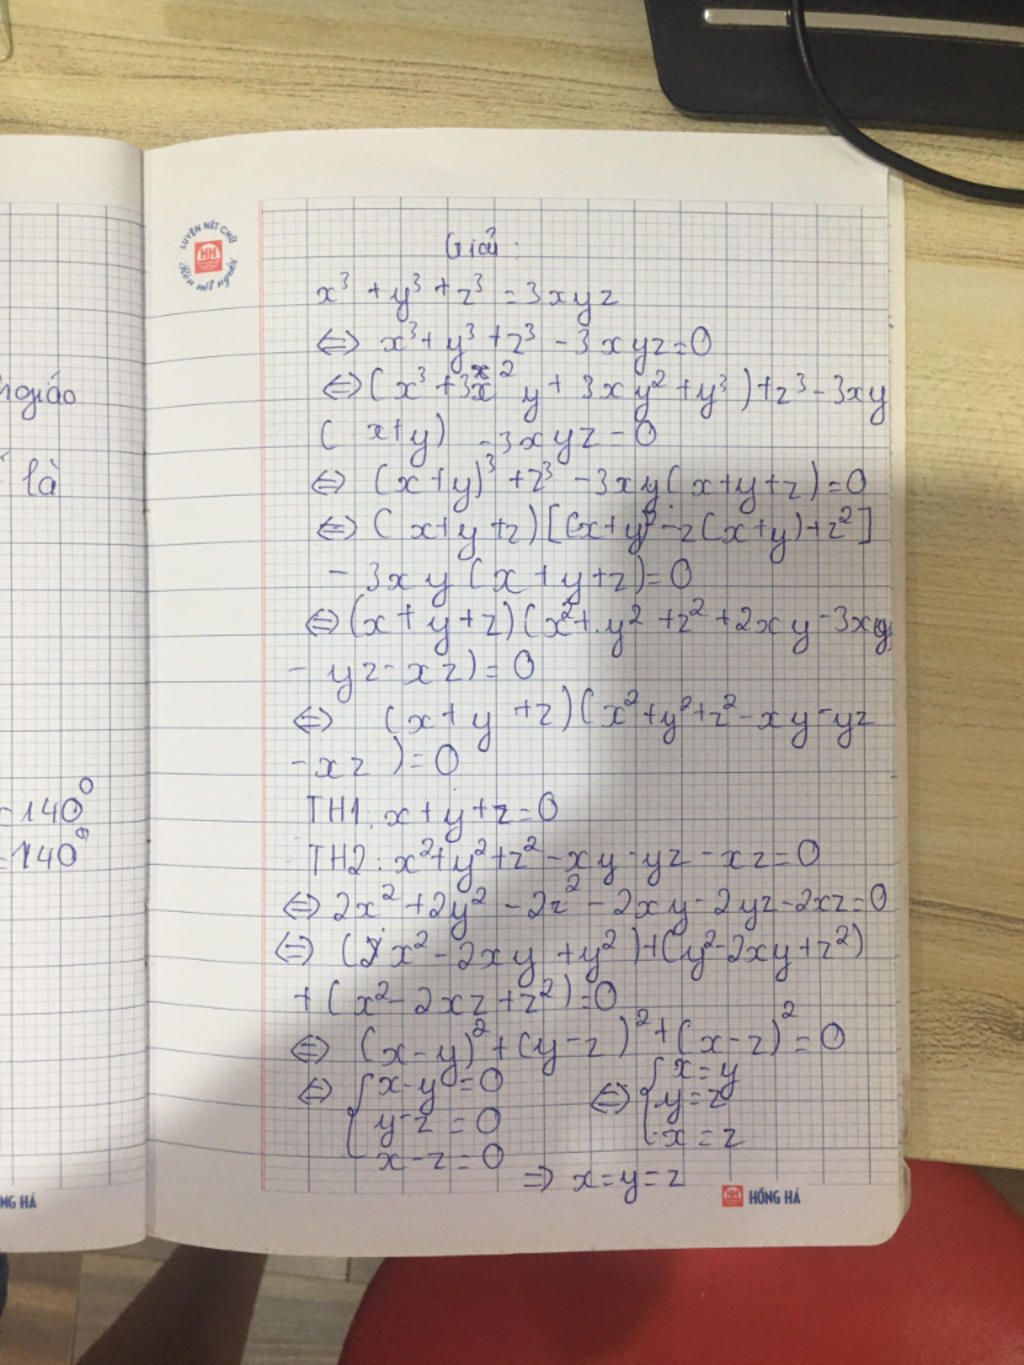 LUYỆN NÉT CHỮ
HH
Rèn nết người
Giải:
x³ + y³ + z³ = 3xyz
⇔ x³ + y³ + z³ - 3xyz = 0
⇔ (x³ + 3x²y + 3xy² + y³) + z³ - 3xy
(x+y) - 3xyz = 0
⇔ (x+y)³ + z³ - 3xy(x+y+z) = 0
⇔ (x+y+z)[(x+y)² - z(x+y) + z²]
- 3xy(x+y+z) = 0
⇔ (x+y+z)(x² + y² + z² + 2xy - 3xy
- yz - xz) = 0
⇔ (x+y+z)(x² + y² + z² - xy - yz
- xz) = 0
TH1: x+y+z = 0
TH2: x² + y² + z² - xy - yz - xz = 0
⇔ 2x² + 2y² - 2z² - 2xy - 2yz - 2xz = 0
⇔ (x² - 2xy + y²) + (y² - 2xy + z²)
+ (x² - 2xz + z²) = 0
⇔ (x-y)² + (y-z)² + (x-z)² = 0
⇔ { x-y = 0 ⇔ { x = y
y-z = 0 y = z
x-z = 0 x = z
⇒ x = y = z
HH HỒNG HÀ
giáo
là
=140⁰
=140⁰
NG HÀ